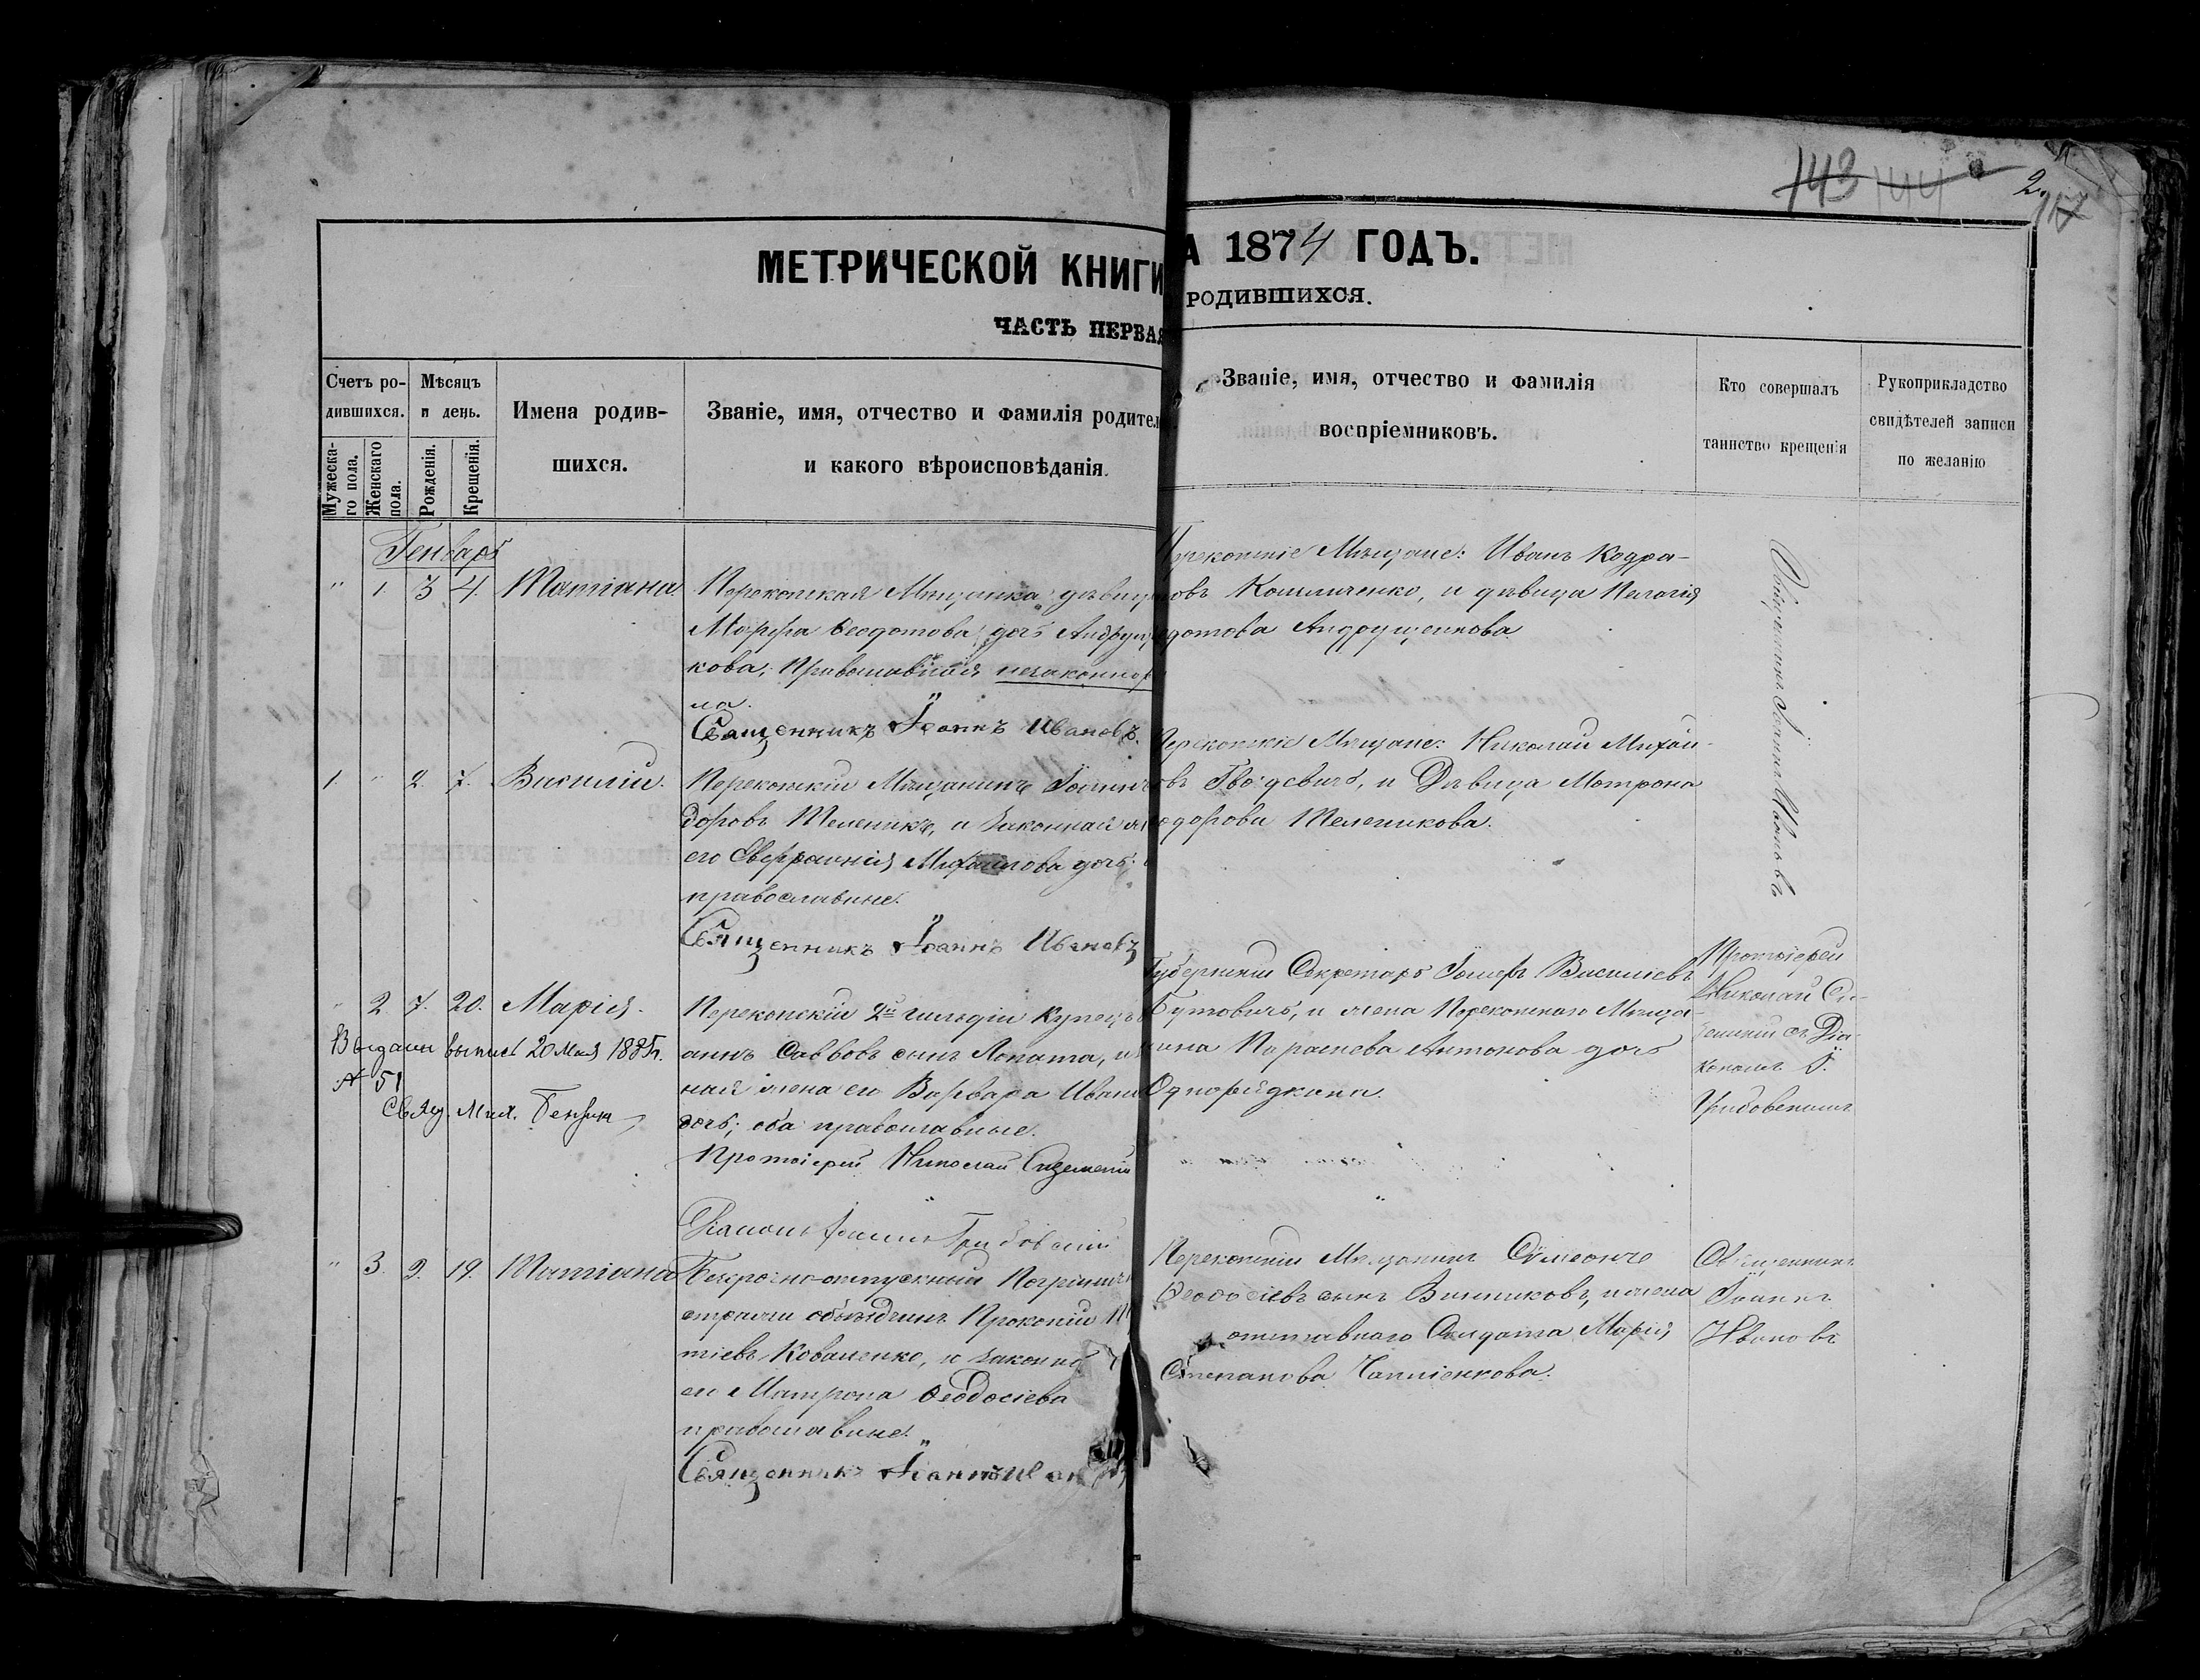 143 144 2.
МЕТРИЧЕСКОЙ КНИГИ
А 1874 ГОДЪ.
ЧАСТЬ ПЕРВАЯ
РОДИВШИХСЯ.
Счетъ ро-
дившихся.
Мужеска-
го пола.
Женскаго
пола.
Мѣсяцъ
и день.
Рожденія.
Крещенія.
Имена родив-
шихся.
Званіе, имя, отчество и фамилія родител
и какого вѣроисповѣданія.
Званіе, имя, отчество и фамилія
воспріемниковъ.
Кто совершалъ
таинство крещенія
Рукоприкладство
свидѣтелей записи
по желанію
Генварь
" 1. 3 4. Татіана
Перекопская Мѣщанка дѣвиц
Марѳа Ѳеодотова дочь Андрущ
кова, Православная, незаконнор
на.
Священникъ Іоаннъ Ивановъ.
Перекопскіе Мѣщане: Иванъ Кодра-
овъ Кошмиченко, и дѣвица Пелагія
дотова Андрущенкова
Священникъ Іоаннъ Ивановъ
1 " 2. 7. Василій.
Перекопскій Мѣщанинъ Іоаннъ
доровъ Телепикъ, и законная
его Евфросинія Михайлова дочь:
православные.
Священникъ Іоаннъ Ивановъ
Перекопскіе Мѣщане: Николай Михай-
овъ Гвоздевичъ, и Дѣвица Мотрона
одорова Телепикова.
" 2 7. 20. Марія.
Выдана выпись 20 Мая 1885 г.
№ 51
Свящ. Мих.
Перекопскій 2й гильдіи Купецъ
аннъ Саввовъ сынъ Лопата, и
ная жена его Варвара Иван
дочь; оба православные.
Протоіерей Николай
Діаконъ Грибовскій
Губернскій Секретарь Іосифъ Василіевъ
Бутовичъ, и жена Перекопскаго Мѣща-
нина Параскева Антонова дочь
Однорядкина.
Протоіерей
Николай Си-
съ Діа-
кономъ І.
Грибовскимъ
" 3. 9. 19. Татіана
Безсрочно-отпускный Погранич
стражи объѣздчикъ Прокопій
тіевъ Коваленко, и законна
его Матрона Ѳеодосіева
православные.
Священникъ Іоаннъ Иван
Перекопскій Мѣщанинъ Сѵмеонъ
Ѳеодосіевъ сынъ Винниковъ, и жена
отставнаго Солдата Марія
Степанова
Священникъ
Іоаннъ
Ивановъ